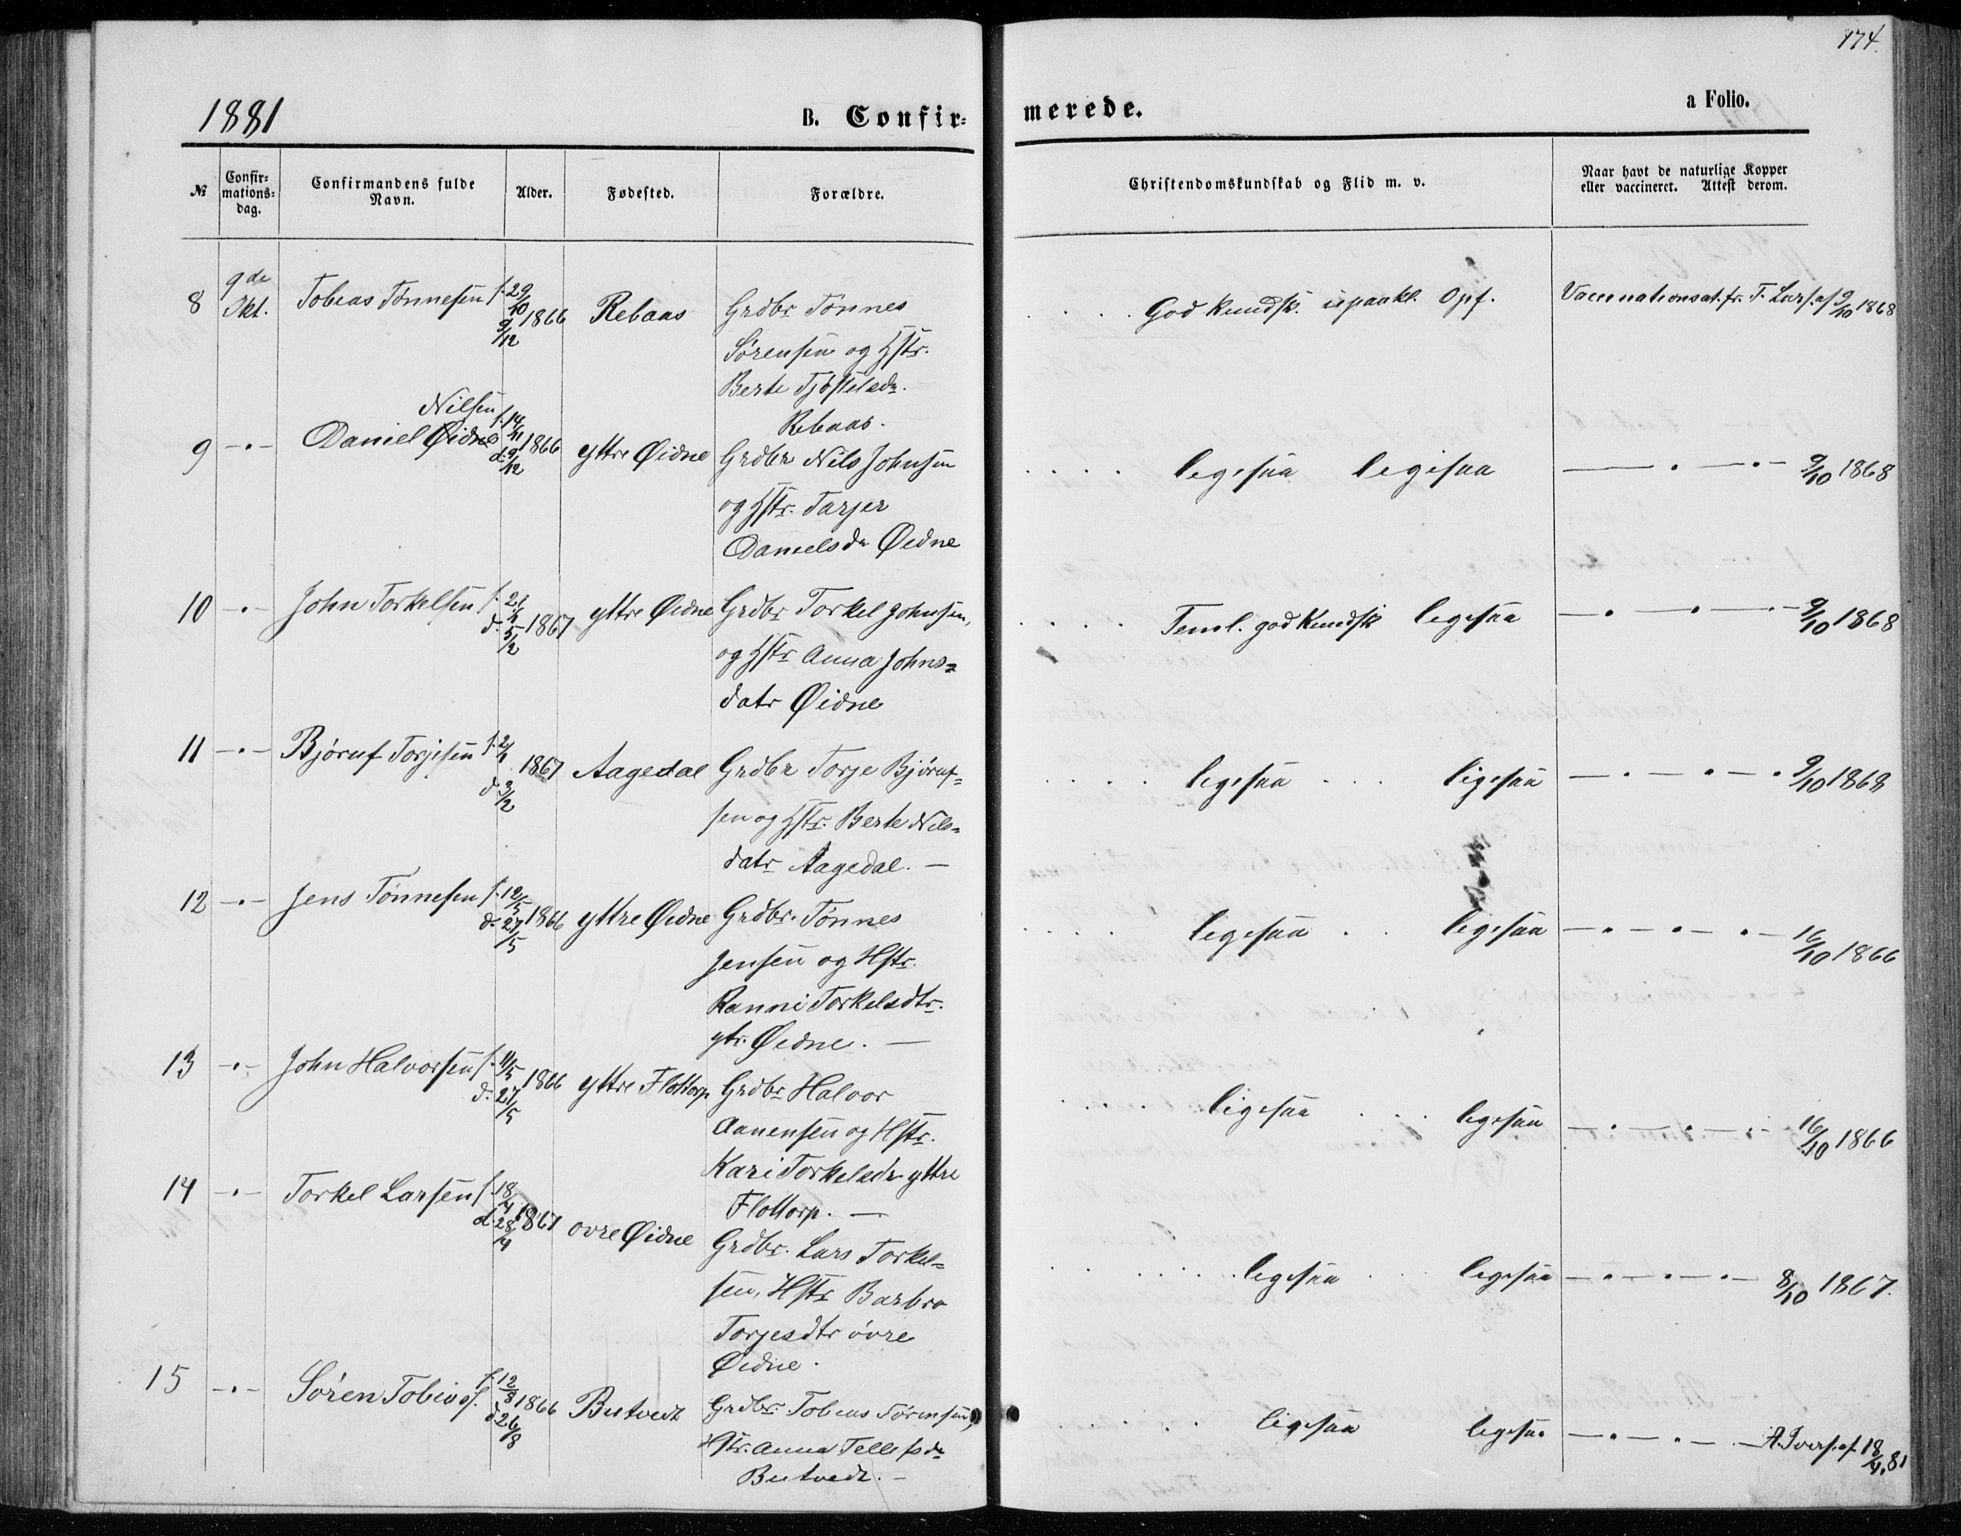 174.
1881
B. Confir-
merede.
a Folio.
№
Confir-
mations-
dag.
Confirmandens fulde
Navn.
Alder.
Fødested.
Forældre.
Christendomskundskab og Flid m. v.
Naar havt de naturlige Kopper
eller vaccineret. Attest derom.
8 9de Okt. Tobias Tønnesen f. 29/10 9/12 1866 Rebaas Grdbr Tønnes
Sørensen og Hstr.
Berte Tjøstelsdr.
Rebaas.
God Kundsk. upaakl. Opf. Vaccinationsat. fr. T. Lars. af 9/10 1868
9 -"- Daniel Nilsen Øidne f. 14/11 d. 9/12 1866 yttre Øidne Grdbr Nils Johnsen
og Hstr. Tarjer
Danielsdr Øidne
ligesaa ligesaa — " — " — 9/10 1868
10 -"- John Torkelsen f. 21/1 d. 5/2 1867 yttre Øidne Grdbr Torkel Johnsen,
og Hstr Anna Johns-
datr Øidne
Teml. god Kundsk ligesaa — " — " — " — 9/10 1868
11 -"- Bjøruf Torjesen f. 2/1 d. 3/2 1867 Aagedal Grdbr Torje Bjøruf-
sen og Hstr. Berte Nils-
datr Aagedal. —
ligesaa ligesaa — " — " — " 9/10 1868
12 -"- Jens Tønnesen f. 12/5 d. 27/5 1866 yttre Øidne Grdbr. Tønnes
Jensen og Hstr.
Ranni Torkelsdtr.
ytr. Øidne. —
ligesaa ligesaa — " — " — " — 16/10 1866
13 -"- John Halvorsen f. 11/5 d. 27/5 1866 yttre Flottorp Grdbr Halvor
Aanensen og Hstr.
Kari Torkelsdr yttre
Flottorp. —
ligesaa ligesaa — " — " — " — 16/10 1866
14 -"- Torkel Larsen f. 18/4 d. 28/4 1867 ovre Øidne Grdbr. Lars Torkel-
sen, Hstr Barbro
Torjesdtr øvre
Øidne.
ligesaa ligesaa — " — " — " — 8/10 1867.
15 -"- Søren Tobiasf. f. 12/8 d. 26/8 1866 Butvedt Grdbr. Tobias Sørensen,
Hstr. Anna Tellefsdr
Butvedt. —
ligesaa ligesaa — " — " — A. Ivers. af 18/4.81